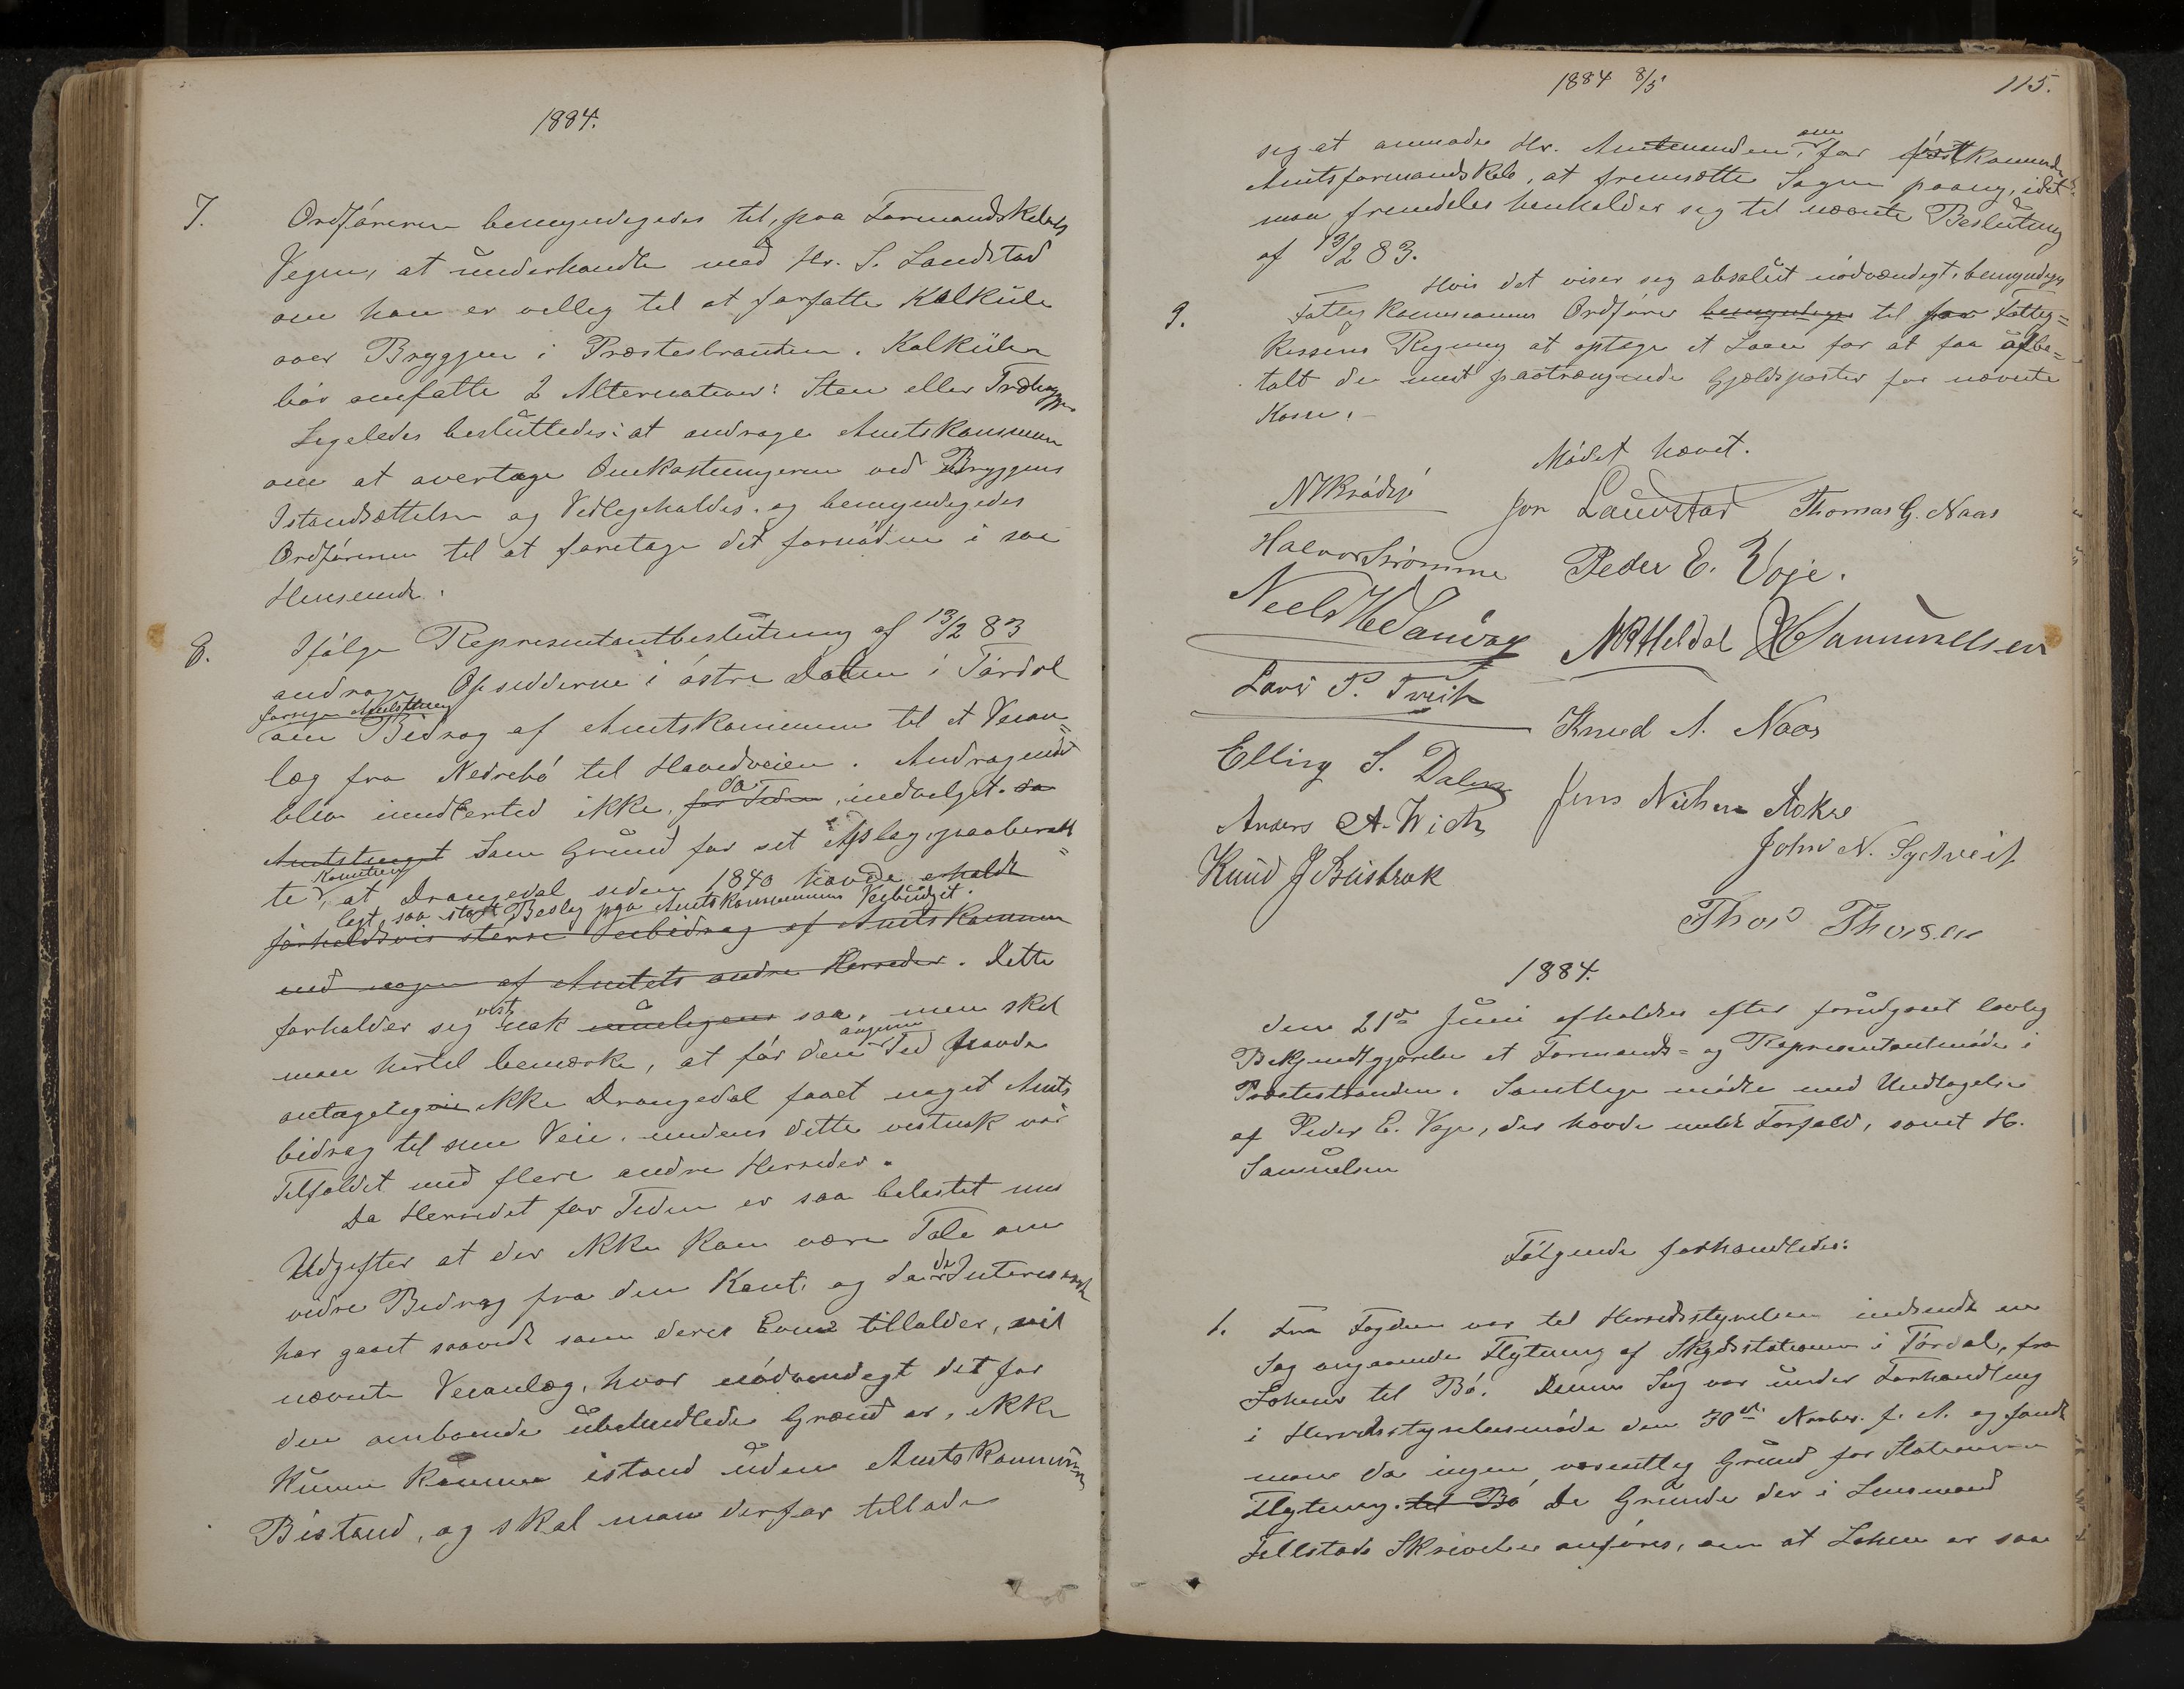 1884.
7. Ordføreren bemyndigedes til, paa Formandskabets
Vegne, at underhandle med Hr. S. Landstad
om han er villig til at forfatte Kalküle
over Bryggen i Præstestranden. Kalkülen
bör omfatte 2 Alternativer: Sten eller Træbrygge
Ligeledes besluttedes: at andrage Amtskommunen
om at overtage Omkostningerne ved Bryggens
Istandsættelse og Vedligeholdes. og bemyndigedes
Ordføreren til at foretage det fornødne i saa
Henseende.
8. Ifølge Representantbeslutning af 13/2 83
androge Opsidderne i østre Dalen i Tördal
forrige Amtsthing
om Bidrag af Amtskommunen til et Veian=
læg fra Nedrebö til Hovedveien. Andragendet
da
blev imidlertid ikke, for Tiden, indvilget. da
Amtstinget Som Grund for sit Afslag, paaberaab=
Komiteen
te, at Drangedal siden 1840 havde erholdt
lagt saa stort Beslag paa Amtskommunens Veibudget.
forholdsvis större Veibidrag af Amtskommunen
end nogen af Amtets andre Herreder. Dette
vist
forholder sig nok muligens saa, men skal
angivne
man hertil bemærke, at för den Tid havde
antageligvis ikke Drangedal faaet noget Amts
bidrag til sine Veie. medens dette vistnok var
Tilfældet med flere andre Herreder.
Da Herredet for Tiden er saa belastet med
Udgifter at der ikke kan være Tale om
de
videre Bidrag fra den Kant. og da Interesserede
har gaaet saavidt som deres Evne tillader, vil
nævnte Veianlæg, hvor nödvendigt det for
den omboende ubemidlede Grænd er, ikke
kunne komme istand uden Amtskommunens
Bistand, og skal man derfor tillade
1884 8/5 115.
om
sig at anmode Hr. Amtmanden, for förstkommende
Amtsformandskab, at fremsætte Sagen paany, idet
man fremdeles henholder sig til nævnte Beslutning
af 13/2 83.
Hvis det viser sig absolut nödvendigt, bemyndiges
9. Fattigkommissionens Ordfører bemyndiges til for Fattig=
kassens Regning at optage et Laan for at faa afbe=
talt de mest paatrængende Gjældsposter for nævnte
Kasse.
Mödet hævet.
Jon Lauvstad Thomas G. Naas
Halvor Strømme Peder E. Voje.
Neels H Sandvog H Samuuelsen
Lars P. Tveit
Knud A. Naas
Elling S. Dalen
Jens Nielsen Aakre
Anders A. Wick
John N. Sydtveit
Knud J Busbrak
Thor Thorsen
1884.
den 21de Juni afholdtes efter forudgaaet lovlig
Bekjendtgjørelse et Formands= og Representantmöde i
Præstestranden. Samtlige mödte med Undtagelse
af Peder E. Voje, der havde meldt Forfald, samt H.
Samuelsen
Fölgende forhandledes:
1. Fra Fogden var til Herredsstyrelsen indsendt en
Sag angaaende Flytning af Skydsstationen i Tördal, fra
til Bö. Denne Sag var under Forhandling
i Herredsstyrelsesmöde den 30te Novbr. f. A. og fandt
man da ingen væsentlig Grund for Stationens
Flytning. til Bö De Grunde der i Lensmand
Skrivelse anføres, om at er saa